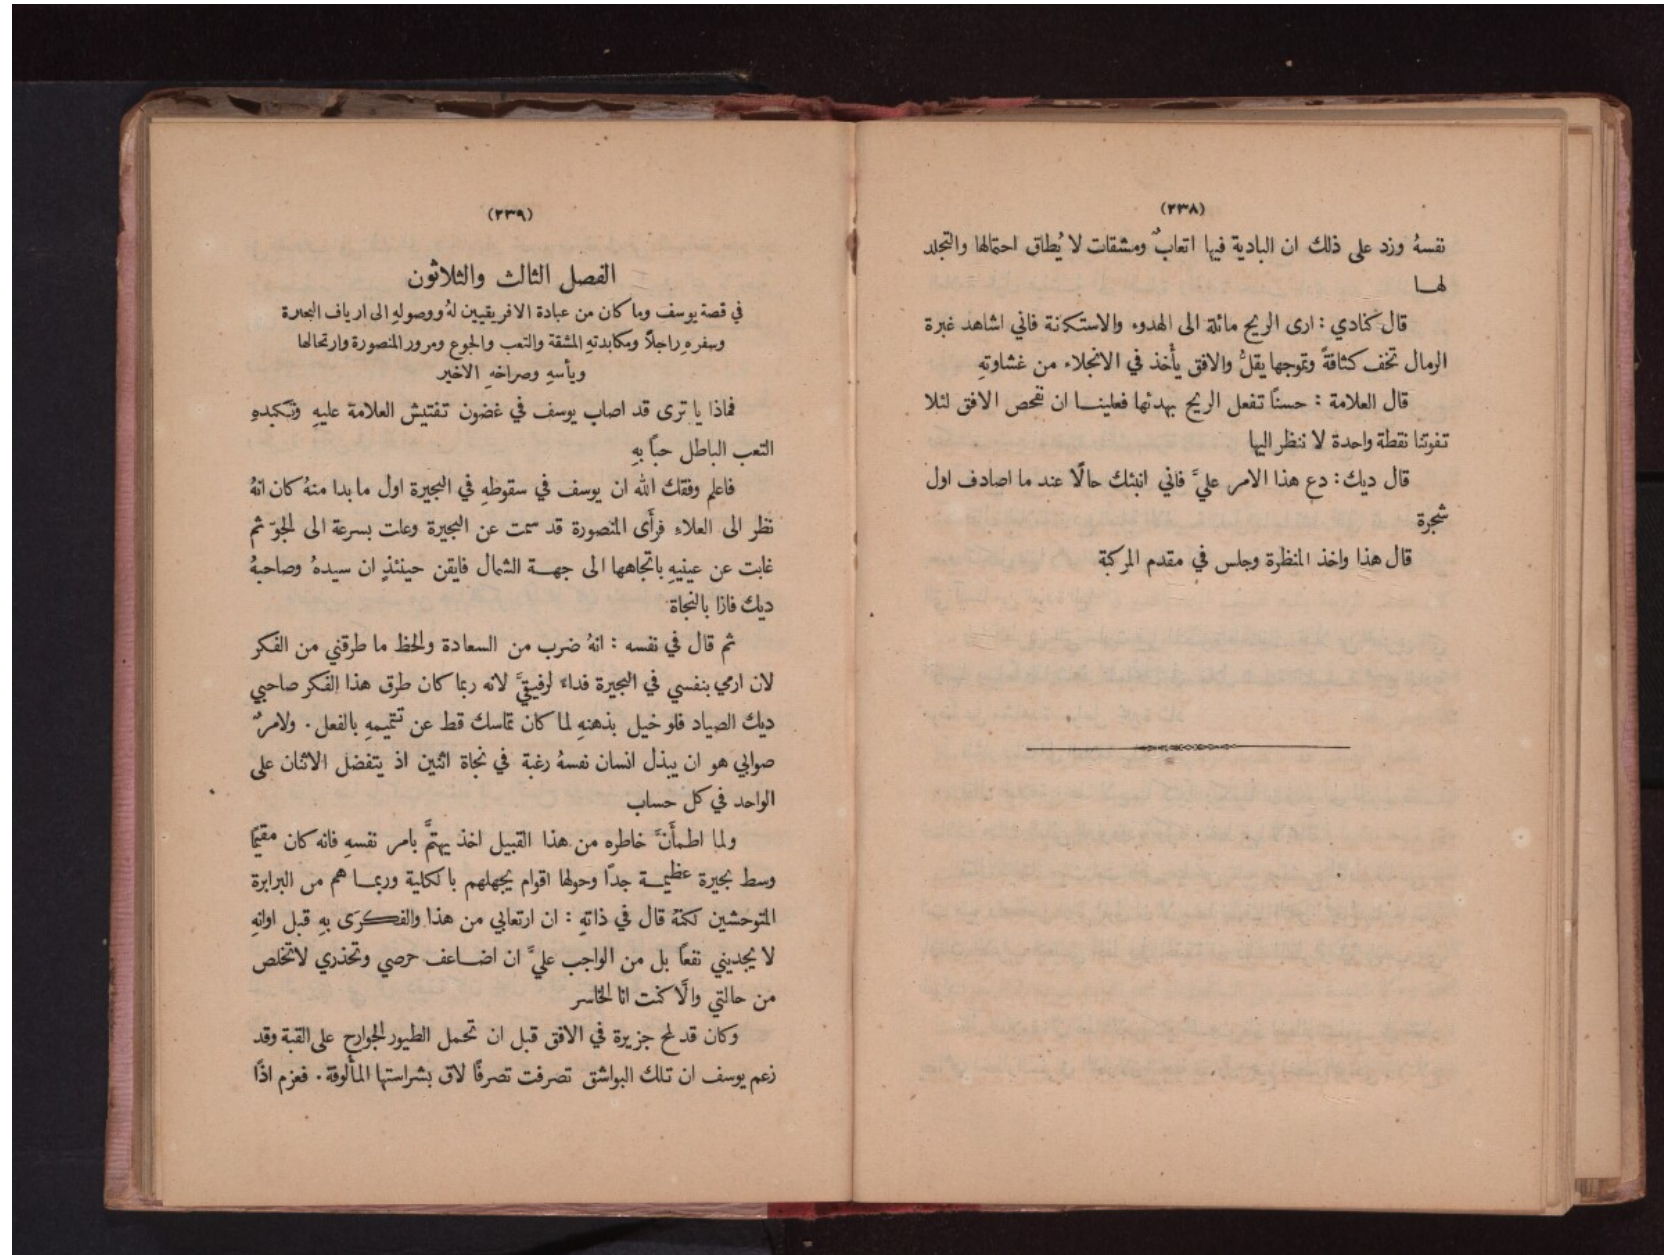 (٢٣٨)
نفسهُ وزد على ذلك ان البادية فيها اتعابٌ ومشقات لا يُطاق احتمالها والتجلد
لها
قال كنادي : ارى الريح مائلة الى الهدوء والاستكانة فاني اشاهد غبرة
الرمال تخف كثافةً وتموجها يقلُّ والافق يأخذ في الانجلاء من غشاوتهِ
قال العلامة : حسنًا تفعل الريح بهدئها فعلينا ان نفحص الافق لئلا
تفوتنا نقطة واحدة لا ننظر اليها
قال ديك: دع هذا الامر عليَّ فاني انبئك حالًا عند ما اصادف اول
شجرة
قال هذا واخذ المنظرة وجلس في مقدم المركبة
(٢٣٩)
الفصل الثالث والثلاثون
في قصة يوسف وما كان من عبادة الافريقيين لهُ ووصولهِ الى ارياف البحيرة
وسفرهِ راجلاً ومكابدتهِ المشقة والتعب والجوع ومرور المنصورة وارتحالها
ويأسهِ وصراخهِ الاخير
فماذا يا ترى قد اصاب يوسف في غضون تفتيش العلامة عليهِ وتكبدهِ
التعب الباطل حبًا بهِ
فاعلم وفقك الله ان يوسف في سقوطهِ في البحيرة اول ما بدا منهُ كان انهُ
نظر الى العلاء فرأَى المنصورة قد سمت عن البحيرة وعلت بسرعة الى الجوّ ثم
غابت عن عينيهِ باتجاهها الى جهة الشمال فايقن حينئذٍ ان سيدهُ وصاحبهُ
ديك فازا بالنجاة
ثم قال في نفسه : انهُ ضرب من السعادة والحظ ما طرقني من الفكر
لان ارمي بنفسي في البحيرة فداءً لرفيقيَّ لانه ربما كان طرق هذا الفكر صاحبي
ديك الصياد فلو خيل بذهنهِ لما كان تماسك قط عن تتميمهِ بالفعل . ولامرٌ
صوابي هو ان يبذل انسان نفسهُ رغبة في نجاة اثنين اذ يتفضل الاثنان على
الواحد في كل حساب
ولما اطمأَنَّ خاطره من هذا القبيل اخذ يهتمَّ بامر نفسهِ فانه كان مقيمًا
وسط بحيرة عظيمة جدًا وحولها اقوام يجهلهم بالكلية وربما هم من البرابرة
المتوحشين لكنهُ قال في ذاتهِ : ان ارتعابي من هذا والفكرى بهِ قبل اوانهِ
لا يجديني نفعًا بل من الواجب عليَّ ان اضاعف حرصي وتحذري لاتخلص
من حالتي والَّا كنت انا الخاسر
وكان قد لمح جزيرة في الافق قبل ان تحمل الطيور الجوارح على القبة وقد
زعم يوسف ان تلك البواشق تصرفت تصرفًا لاق بشراستها المألوفة . فعزم اذًا